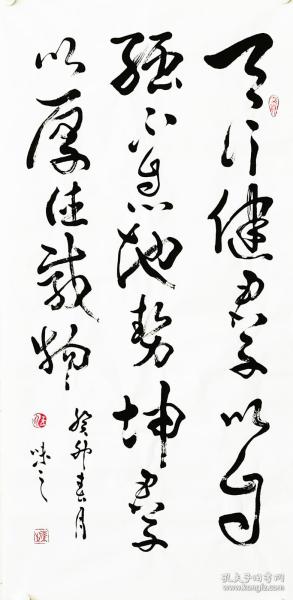 天行健君子以自
强不息地势坤君子
以厚德载物
癸卯春月
味之
孔夫子旧书网
www.kongfz.com